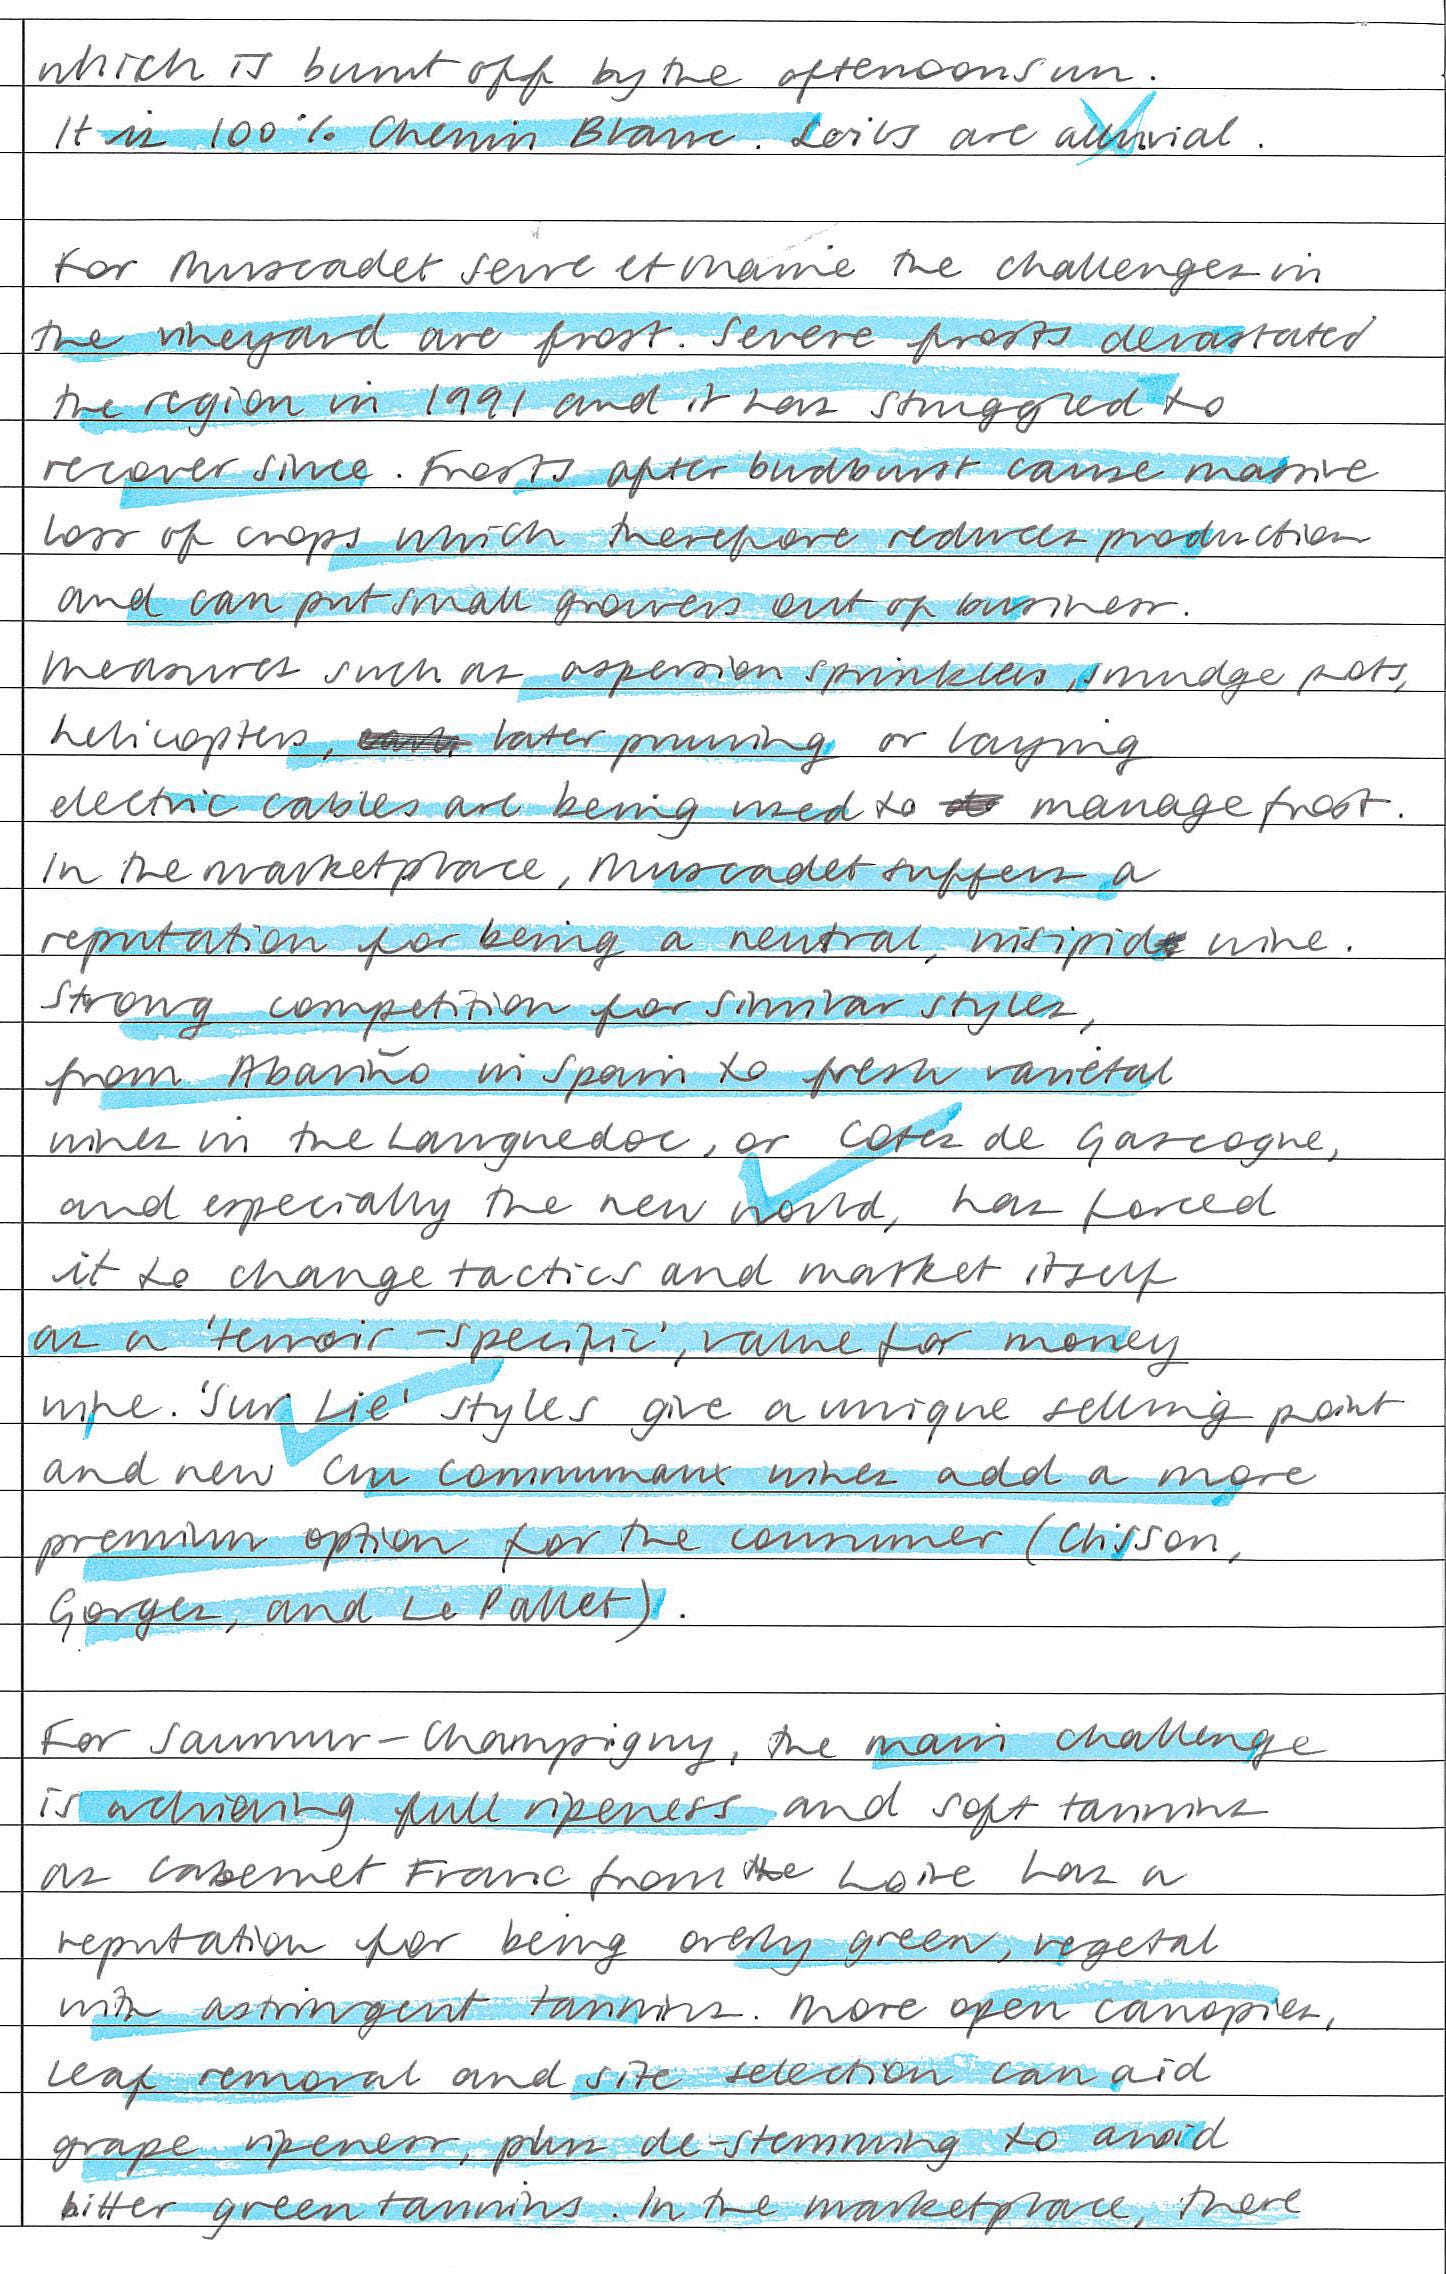 which is burnt off by the afternoon sun.
It is 100% Chenin Blanc. Soils are alluvial.
For Muscadet Sevre et Maine the challenges in
the vineyard are frost. Severe frosts devastated
the region in 1991 and it has struggled to
recover since. Frosts after budburst cause massive
loss of crops which therefore reduces production
and can put small growers out of business.
Measures such as aspersion sprinklers, smudge pots,
helicopters, later pruning or laying
electric cables are being used to manage frost.
In the marketplace, Muscadet suffers a
reputation for being a neutral, insipid wine.
Strong competition for similar styles,
from Abariño in Spain to fresh varietal
wines in the Languedoc, or Cotes de Gascogne,
and especially the new world, has forced
it to change tactics and market itself
as a 'terroir-specific', value for money
wine. 'Sur Lie' styles give a unique selling point
and new Cru Communaux wines add a more
premium option for the consumer (Clisson,
Gorges, and Le Pallet).
For Saumur-Champigny, the main challenge
is achieving full ripeness and soft tannins
as Cabernet Franc from the Loire has a
reputation for being overly green, vegetal
with astringent tannins. More open canopies,
leaf removal and site selection can aid
grape ripeness, plus de-stemming to avoid
bitter green tannins. In the marketplace, there